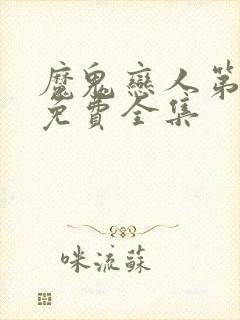 魔鬼戀人第
免費全集
咪流蘇